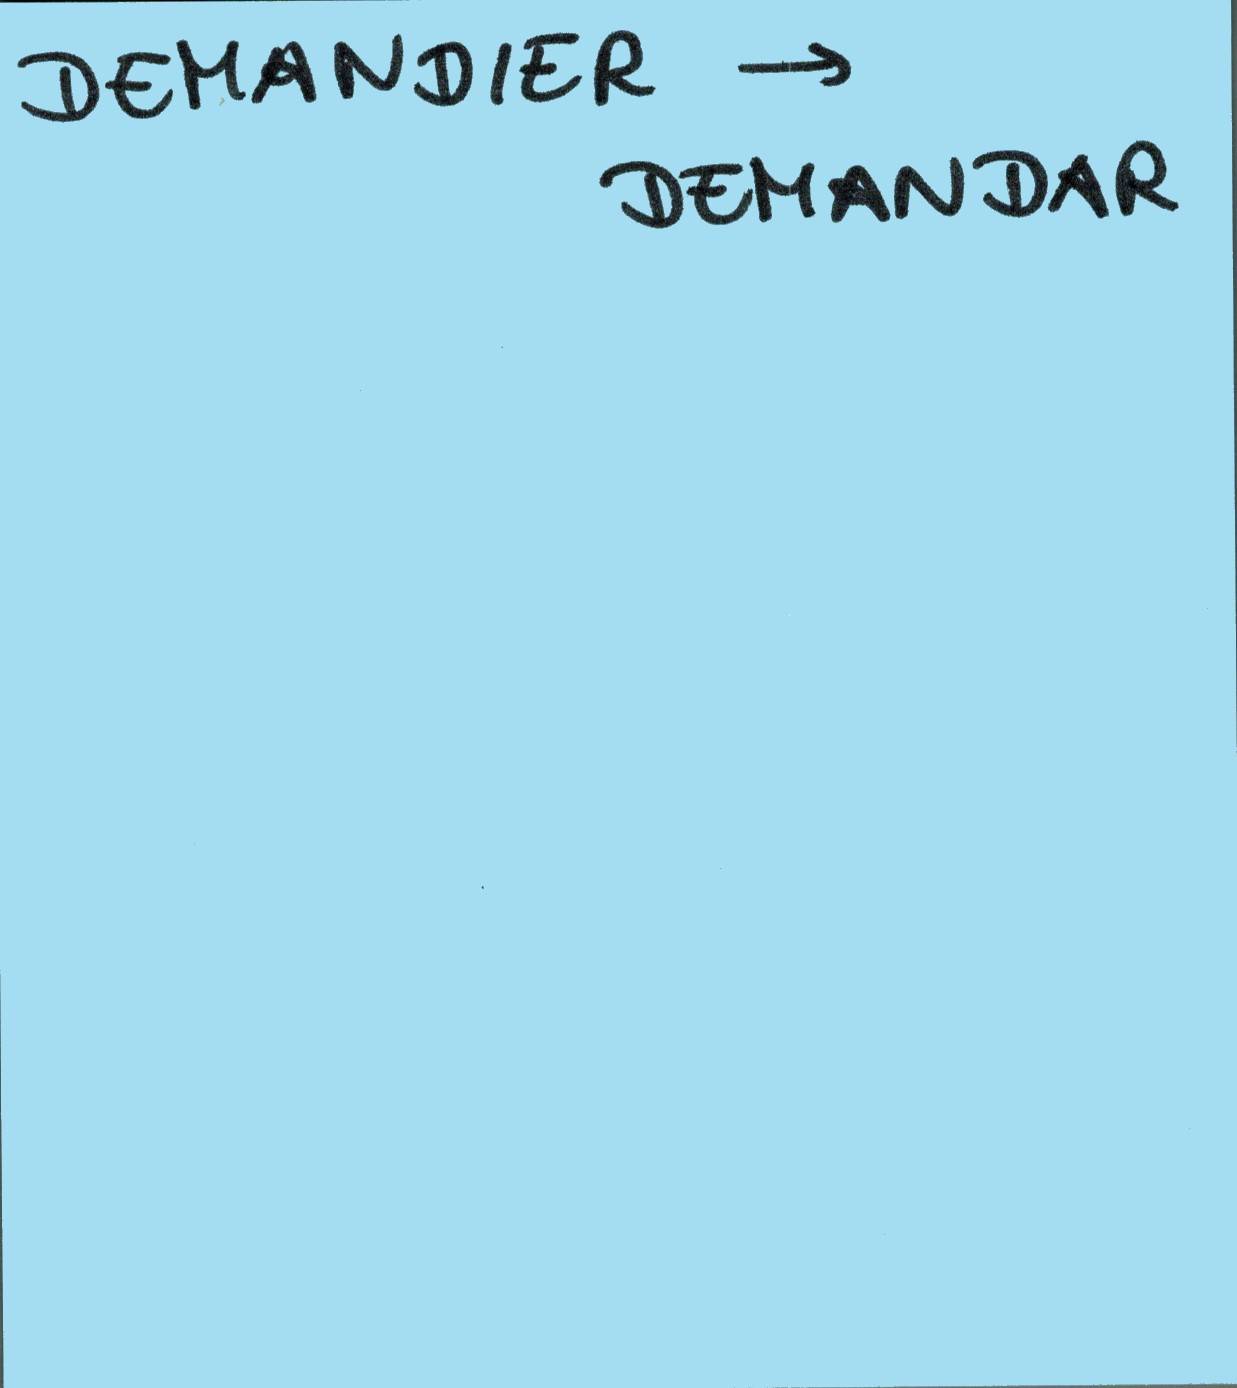 DEMANDIER →
DEMANDAR